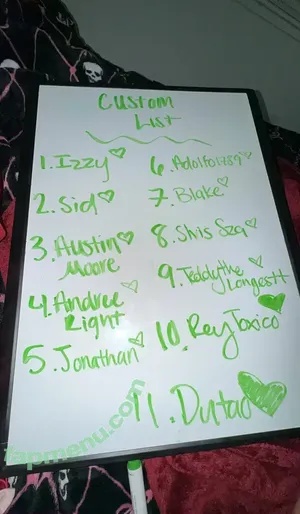 Custom
List
1. Izzy
2. Sid
3. Austin
Moore
4. Andree
Right
5. Jonathan
6. Adolfo1789
7. Blake
8. Shis Sza
9. Teddythe
Longest
10. Rey Toxico
11. Dutao
fapmenu.com